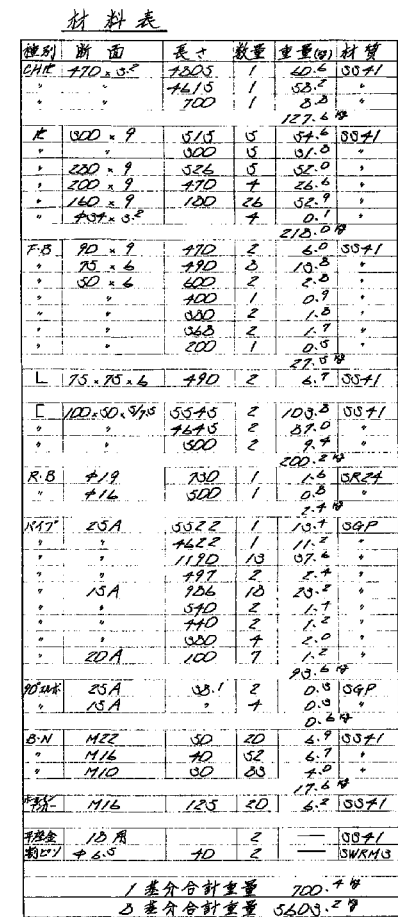 材料表
種別 断面 長さ 数量 重量(kg) 材質
CHR 470×3.2 4805 1 60.6 SS41
〃 4615 1 58.2 〃
〃 700 1 8.8 〃
127.6 kg
R 300×9 515 5 54.6 SS41
〃 〃 300 5 31.8 〃
〃 280×9 526 5 52.0 〃
〃 200×9 470 4 26.6 〃
〃 160×9 180 26 52.9 〃
〃 4 0.1 〃
218.0 kg
F·B 90×9 470 2 6.0 SS41
〃 75×6 490 8 13.8 〃
〃 50×6 600 2 2.8 〃
〃 〃 400 1 0.9 〃
〃 〃 380 2 1.8 〃
〃 〃 368 2 1.7 〃
〃 〃 200 1 0.5 〃
27.5 kg
L 75×75×6 490 2 6.7 SS41
[ 100×50×5/7.5 5545 2 103.8 SS41
〃 〃 4645 2 87.0 〃
〃 〃 500 2 9.4 〃
200.2 kg
R·B φ19 730 1 1.6 SR24
〃 φ16 500 1 0.8 〃
2.4 kg
パイプ 25A 5522 1 13.4 SGP
〃 〃 4622 1 11.2 〃
〃 〃 1190 13 37.6 〃
〃 〃 497 2 2.4 〃
〃 15A 986 18 23.2 〃
〃 〃 540 2 1.4 〃
〃 〃 440 2 1.2 〃
〃 〃 380 4 2.0 〃
〃 20A 100 7 1.2 〃
93.6 kg
90°エルボ 25A 38.1 2 0.3 SGP
〃 15A 〃 4 0.3 〃
0.6 kg
B·N M22 50 20 6.9 SS41
〃 M16 40 52 6.7 〃
〃 M10 30 83 4.0 〃
17.6 kg
M16 125 20 6.2 SS41
平座金 18用 2 — SS41
割ピン φ6.5 40 2 — SWRM3
1基分合計重量 700.4 kg
8基分合計重量 5603.2 kg